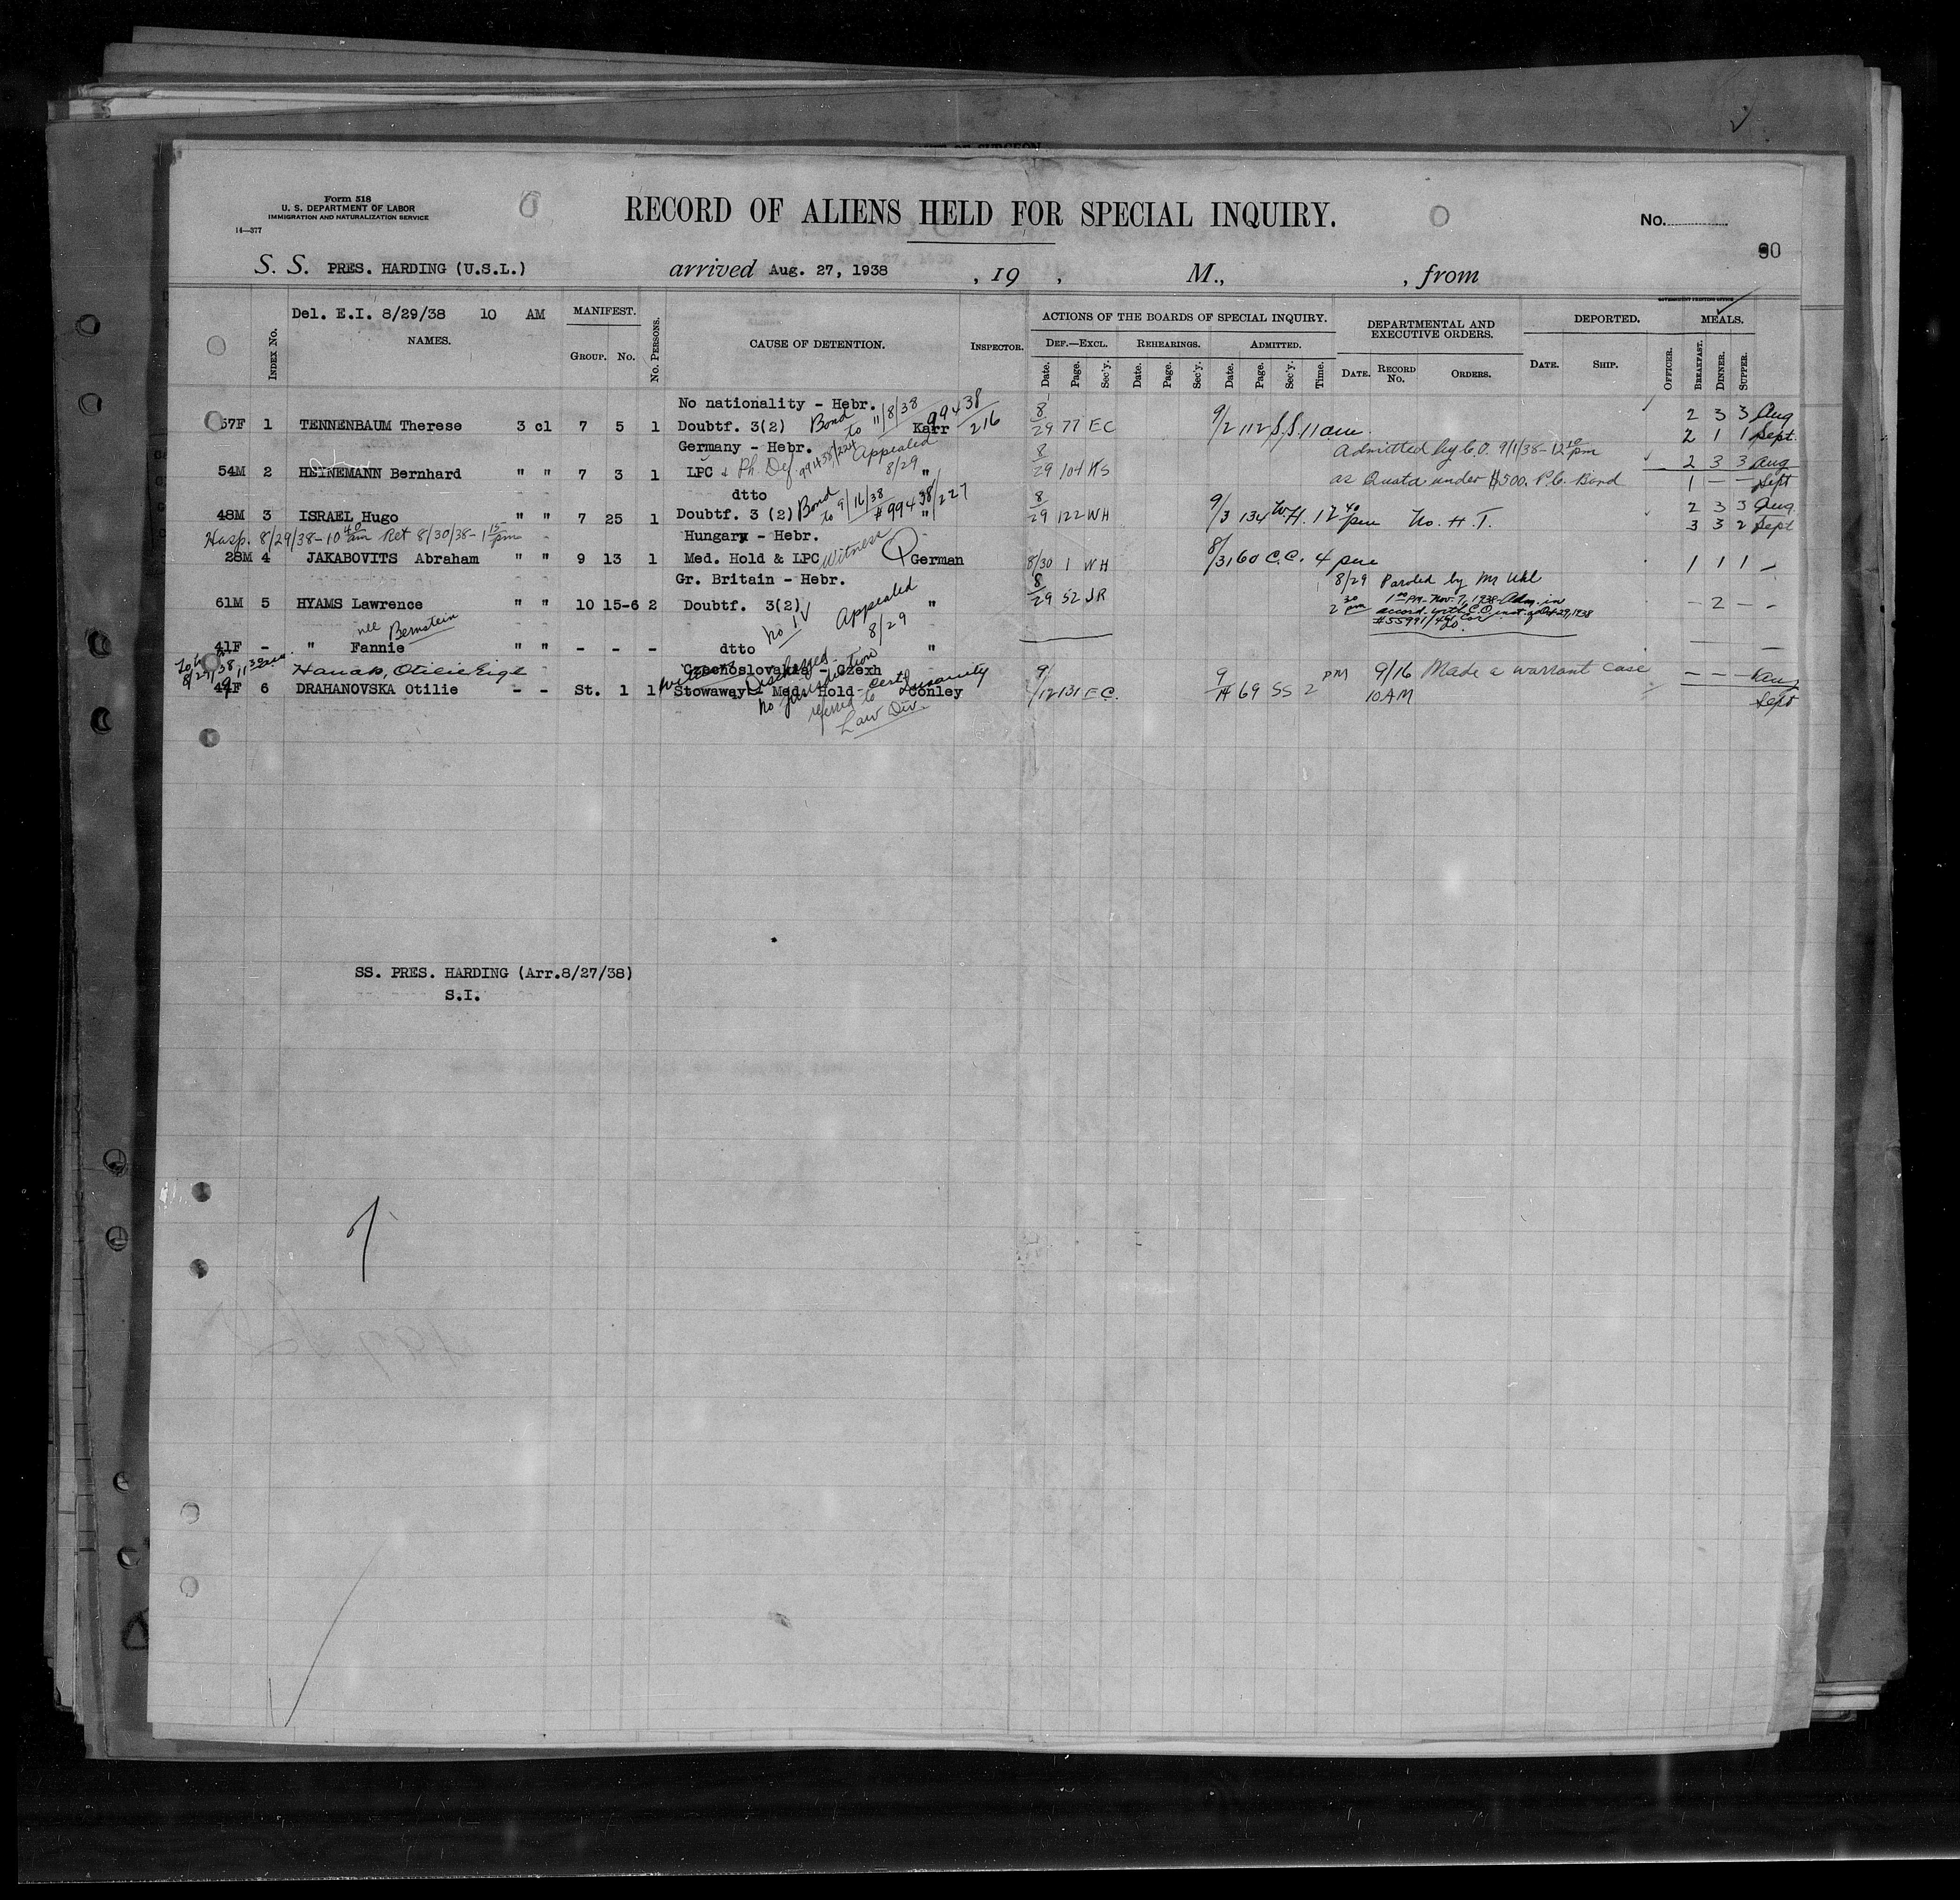 Form 518
U. S. DEPARTMENT OF LABOR
IMMIGRATION AND NATURALIZATION SERVICE
14—377
RECORD OF ALIENS HELD FOR SPECIAL INQUIRY.
No.
90
S. S. PRES. HARDING (U.S.L.) arrived Aug. 27, 1938 , 19 , M., , from
GOVERNMENT PRINTING OFFICE
Index No.
Del. E.I. 8/29/38 10 AM
NAMES.
MANIFEST.
Group. No.
No. Persons.
CAUSE OF DETENTION.
Inspector.
ACTIONS OF THE BOARDS OF SPECIAL INQUIRY.
Def.—Excl. Rehearings. Admitted.
Date. Page. Sec'y. Date. Page. Sec'y. Date. Page. Sec'y. Time.
DEPARTMENTAL AND EXECUTIVE ORDERS.
Date. Record No. Orders.
DEPORTED.
Date. Ship.
Officer.
MEALS.
Breakfast. Dinner. Supper.
No nationality - Hebr.
57F 1 TENNENBAUM Therese 3 cl 7 5 1 Doubtf. 3(2) Bond to 11/8/38 Karr 99438/216 8/29 77 EC 9/2 112 S.S. 11 am 2 3 3 Aug
2 1 1 Sept.
Germany - Hebr.
54M 2 HEINEMANN Bernhard " " 7 3 1 LPC & Ph. Def. 99438/224 Appealed 8/29 " 8/29 104 KS Admitted by C.O. 9/1/38 - 12 10 pm 2 3 3 Aug
as Quota under $500. P.C. Bond 1 - - Sept
dtto
48M 3 ISRAEL Hugo " " 7 25 1 Doubtf. 3 (2) Bond to 9/16/38 #99438/227 " 8/29 122 WH 9/3 134 W.H. 12 40 pm No. H. T. 2 3 3 Aug.
3 3 2 Sept
Hosp. 8/29/38 - 10 40 am Ret 8/30/38 - 1 15 pm
Hungary - Hebr.
28M 4 JAKABOVITS Abraham " " 9 13 1 Med. Hold & LPC Witness German 8/30 1 WH 8/31 60 C.C. 4 pm 1 1 1 -
Gr. Britain - Hebr.
61M 5 HYAMS Lawrence " " 10 15-6 2 Doubtf. 3(2) no IV Appealed 8/29 " 8/29 52 JR 8/29 2 30 pm Paroled by Mr Uhl
1 00 PM - Nov. 7, 1938 - Adm. in
accord. with C.O. inst. of Oct 29, 1938
- 2 - -
nee Bernstein
41F - " Fannie " " - - - dtto "
8/29/38
Hanak, Otilie Eige
Czechoslovakia - Czexh
44F 6 DRAHANOVSKA Otilie - - St. 1 1 Stowaway - Med. Hold - Cert Insanity Conley 9/12 131 E.C. 9/14 69 SS 2 PM 9/16 10 AM Made a warrant case - - - Aug
Sept
Witness Discharged
no jurisdiction
referred to
Law Div.
SS. PRES. HARDING (Arr.8/27/38)
S.I.